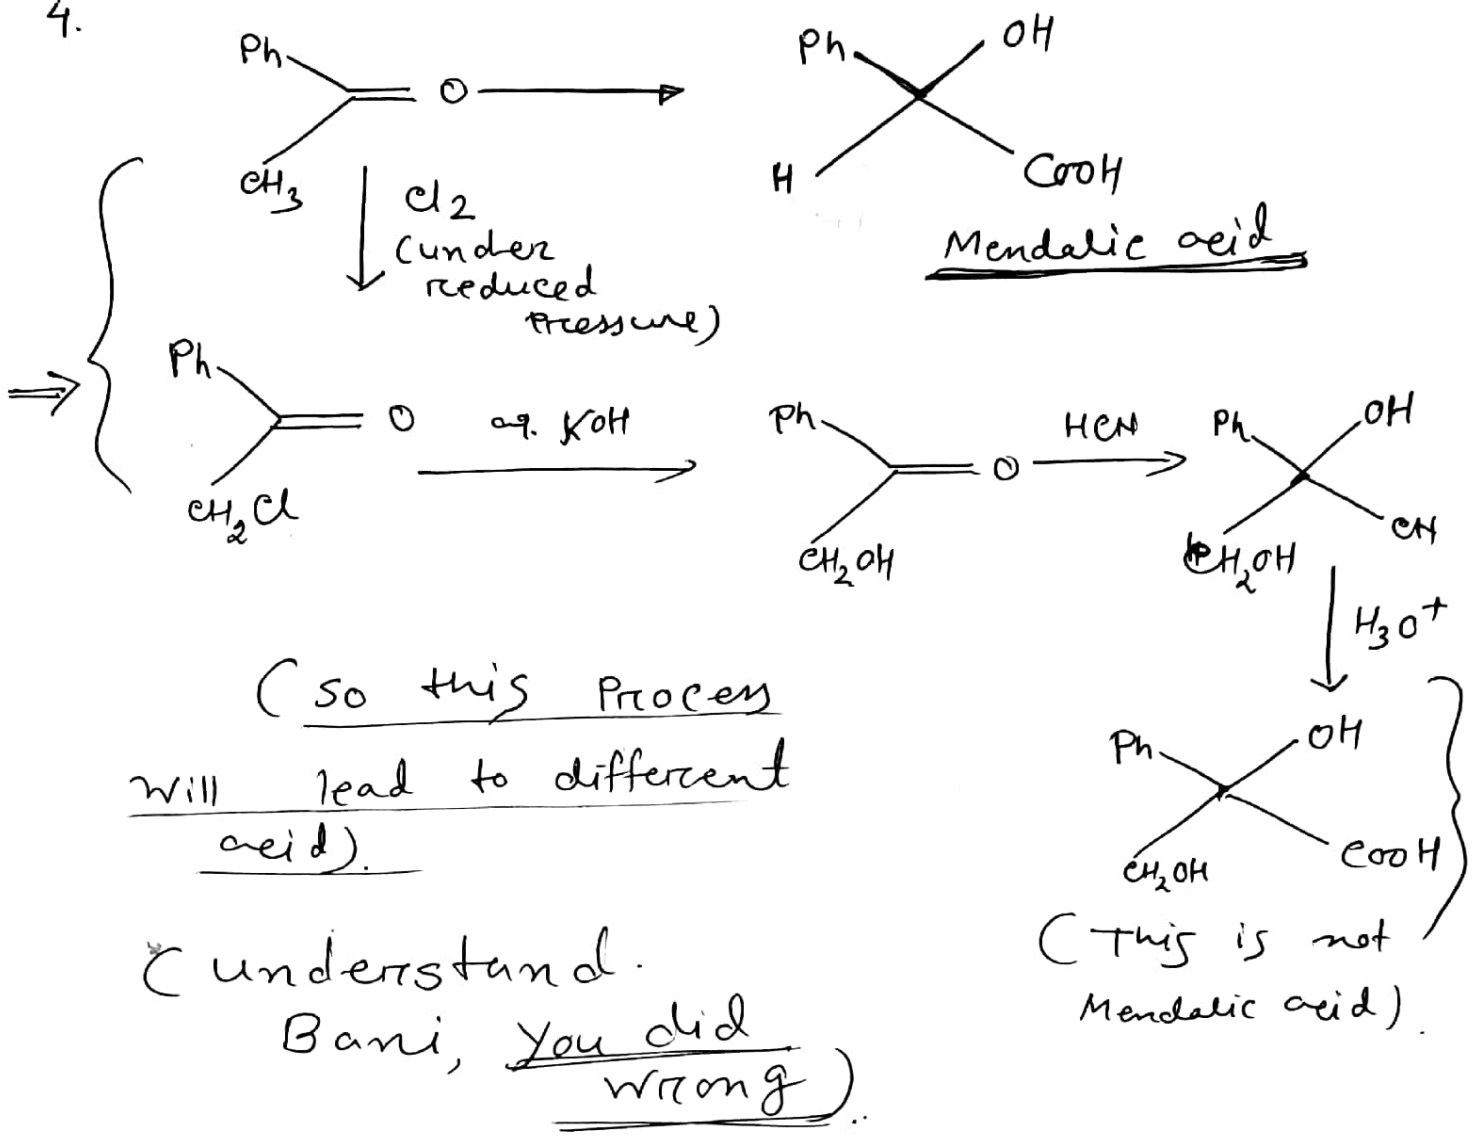 4.
Ph
O
CH3
Ph
OH
H
COOH
Mendalic acid
Cl2
(under
reduced
pressure)
⇒
Ph
O
CH2Cl
aq. KOH
Ph
O
CH2OH
HCN
Ph
OH
CN
CH2OH
H3O+
Ph
OH
CH2OH
COOH
(This is not
Mendalic acid).
(so this Process
will lead to different
acid).
(understand.
Bani, You did
wrong)..